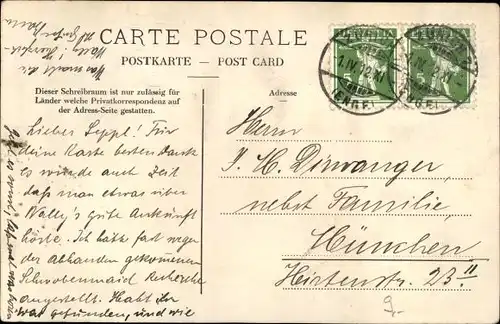 CARTE POSTALE
POSTKARTE — POST CARD
Dieser Schreibraum ist nur zulässig für
Länder welche Privatkorrespondenz auf
der Adress-Seite gestatten.
Adresse
HELVETIA
(ENGE)
Lieber Seppl! Für
deine Karte besten dank
es würde auch Zeit
daß man etwas über
Wally's gute Ankunft
hörte. Ich hätte fast wegen
der abhanden gekommenen
Schwobenmaid Recherche
angestellt. Habt Ihr
was gefunden, und wie
Herrn
J. H. Dirwanger,
nebst Familie,
München
Hirtenstr. 23 II
9.-
Was macht die
Wally!